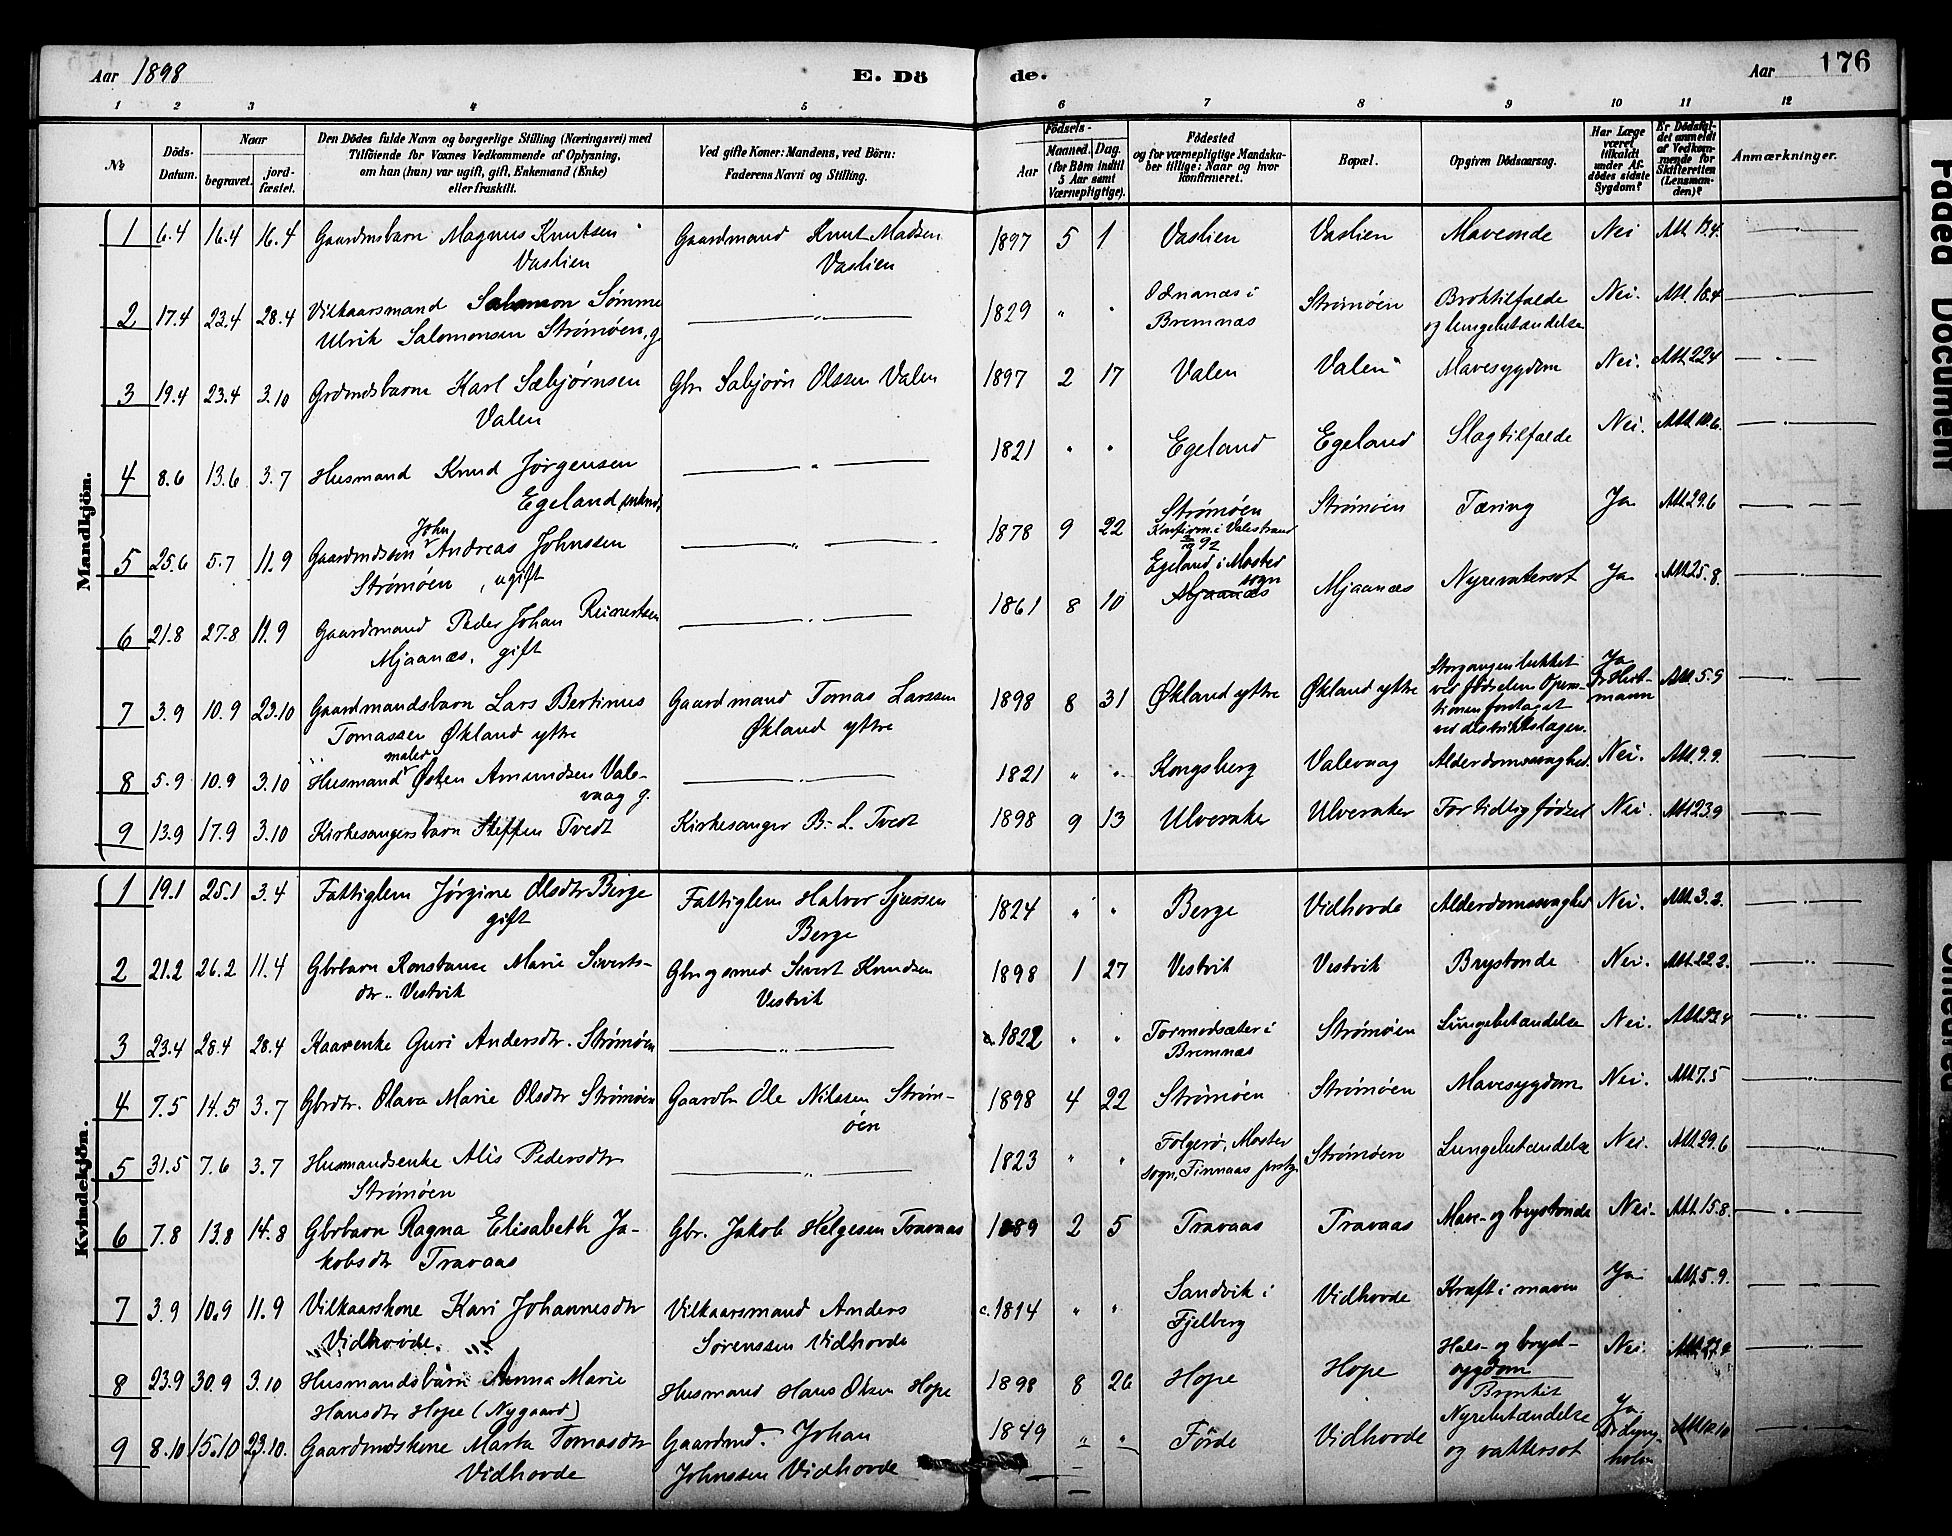 Aar 1898 E. Dö de. Aar 176
1 2 3 4 5 6 7 8 9 10 11 12
№ Döds-Datum. Naar begravet. jordfæstet. Den Dödes fulde Navn og borgerlige Stilling (Næringsvei) med Tilföiende for Voxnes Vedkommende af Oplysning, om han (hun) var ugift, gift, Enkemand (Enke) eller fraskilt. Ved gifte Koner: Mandens, ved Börn: Faderens Navn og Stilling. Födsels- Aar Maaned. Dag. (for Börn indtil 5 Aar samt Værnepligtige). Födested og for værnepligtige Mandskaber tillige: Naar og hvor konfirmeret. Bopæl. Opgiven Dödsaarsag. Har Læge været tilkaldt under Afdödes sidste Sygdom? Er Dödsfaldet anmeldt af Vedkommende for Skifteretten (Lensmanden)? Anmærkninger.
Mandkjön.
1 6.4 16.4 16.4 Gaardmsbarn Magnus Knutsen Vaslien Gaardmand Knut Madsen Vaslien 1897 5 1 Vaslien Vaslien Maveonde Nei Att. 17.4.
2 17.4 22.4 28.4 Vilkaarsmand Salomon Sømme Ulrik Salomonsen Strømøen, g 1829 " " Ødnanæs i Bremnæs Strømøen Broktilfælde og lungebetændelse Nei. Att. 18.4
3 19.4 23.4 3.10 Grdmdsbarn Karl Sæbjørnsen Valen Gbr Sæbjørn Olssen Valen 1897 2 17 Valen Valen Mavesygdom Nei. Att. 22.4
4 8.6 13.6 3.7 Husmand Knud Jørgensen Egeland, enkmd. 1821 " " Egeland Egeland Slagtilfælde Nei. Att. 10.6.
5 25.6 5.7 11.9 Gaardmdssøn John Andreas Johnssen Strømøen, ugift 1878 9 22 Strømøen Konfirm. i Valestrand 92 Strømøen Tæring Ja Att. 29.6
6 21.8 27.8 11.9 Gaardmand Peder Johan Reinertsen Mjaanæs. gift 1861 8 10 Egeland i Moster sogn Mjaanæs Mjaanæs Nyrevatersot Ja Att. 25.8.
7 3.9 10.9 23.10 Gaardmandsbarn Lars Bertinus Tomassen Økland yttre Gaardmand Tomas Larssen Økland yttre 1898 8 31 Økland yttre Økland yttre Storgangen lukket ved fødselen Operationen foretaget ved distriktslægen. Ja Att. 5.9
8 5.9 10.9 3.10 Husmand maler Østen Amundsen Valevaag g. 1821 " " Kongsberg Valevaag Alderdomssvaghed. Nei. Att. 9.9.
9 13.9 17.9 3.10 Kirkesangersbarn Steffen Tvedt Kirkesanger B. L. Tvedt 1898 9 13 Ulveraker Ulveraker For tidlig fødsel Nei. Att. 23.9
Kvindekjön.
1 19.1 25.1 3.4 Fattiglem Jørgine Olsdtr Berge gift Fattiglem Halvor Sjursen Berge 1824 " " Berge Vidhovde Alderdomssvaghed Nei. Att. 3.2.
2 21.2 26.2 11.4 Gbrbarn Konstanse Marie Sivertsdtr. Vestvik Gbr og smed Sivert Knudsen Vestvik 1898 1 27 Vestvik Vestvik Brystonde Nei. Att. 22.2.
3 23.4 28.4 28.4 Kaarenke Guri Andersdtr. Strømøen 1822 " " Tormodsæter i Bremnæs Strømøen Lungebetændelse Nei. Att. 23.4
4 7.5 14.5 3.7 Gbrdtr. Olava Marie Olsdtr Strømøen Gaardbr Ole Nilssen Strømøen 1898 4 22 Strømøen Strømøen Mavesygdom Nei. Att. 7.5
5 31.5 7.6 3.7 Husmandsenke Alis Pedersdtr Strømøen 1823 " " Folgerø, Moster sogn, Finnaas prstgj. Strømøen Lungebetændelse Nei. Att. 29.6
6 7.8 13.8 14.8 Gbrbarn Ragna Elisabeth Jakobsdtr Travaas Gbr. Jakob Helgesen Travaas 1889 2 5 Travaas Travaas Mave- og brystonde Nei. Att. 15.8.
7 3.9 10.9 11.9 Vilkaarskone Kari Johannesdtr Vidhovde. Vilkaarsmand Anders Sørenssen Vidhovde c. 1814 " " Sandvik i Fjelberg Vidhovde Kræft i maven Ja Att. 5.9.
8 23.9 30.9 3.10 Husmandsbarn Anna Marie Hansdtr Hope (Nygaard) Husmand Hans Olsen Hope 1898 8 26 Hope Hope Hals- og brystsygdom Bronkit Nei. Att. 27.9
9 8.10 15.10 23.10. Gaardmdskone Marta Tomasdtr Vidhovde Gaardmd. Johan Johnssen Vidhovde 1849 " " Førde Vidhovde Nyrebetændelse og vattersot Ja Att. 10.10
Faded Document